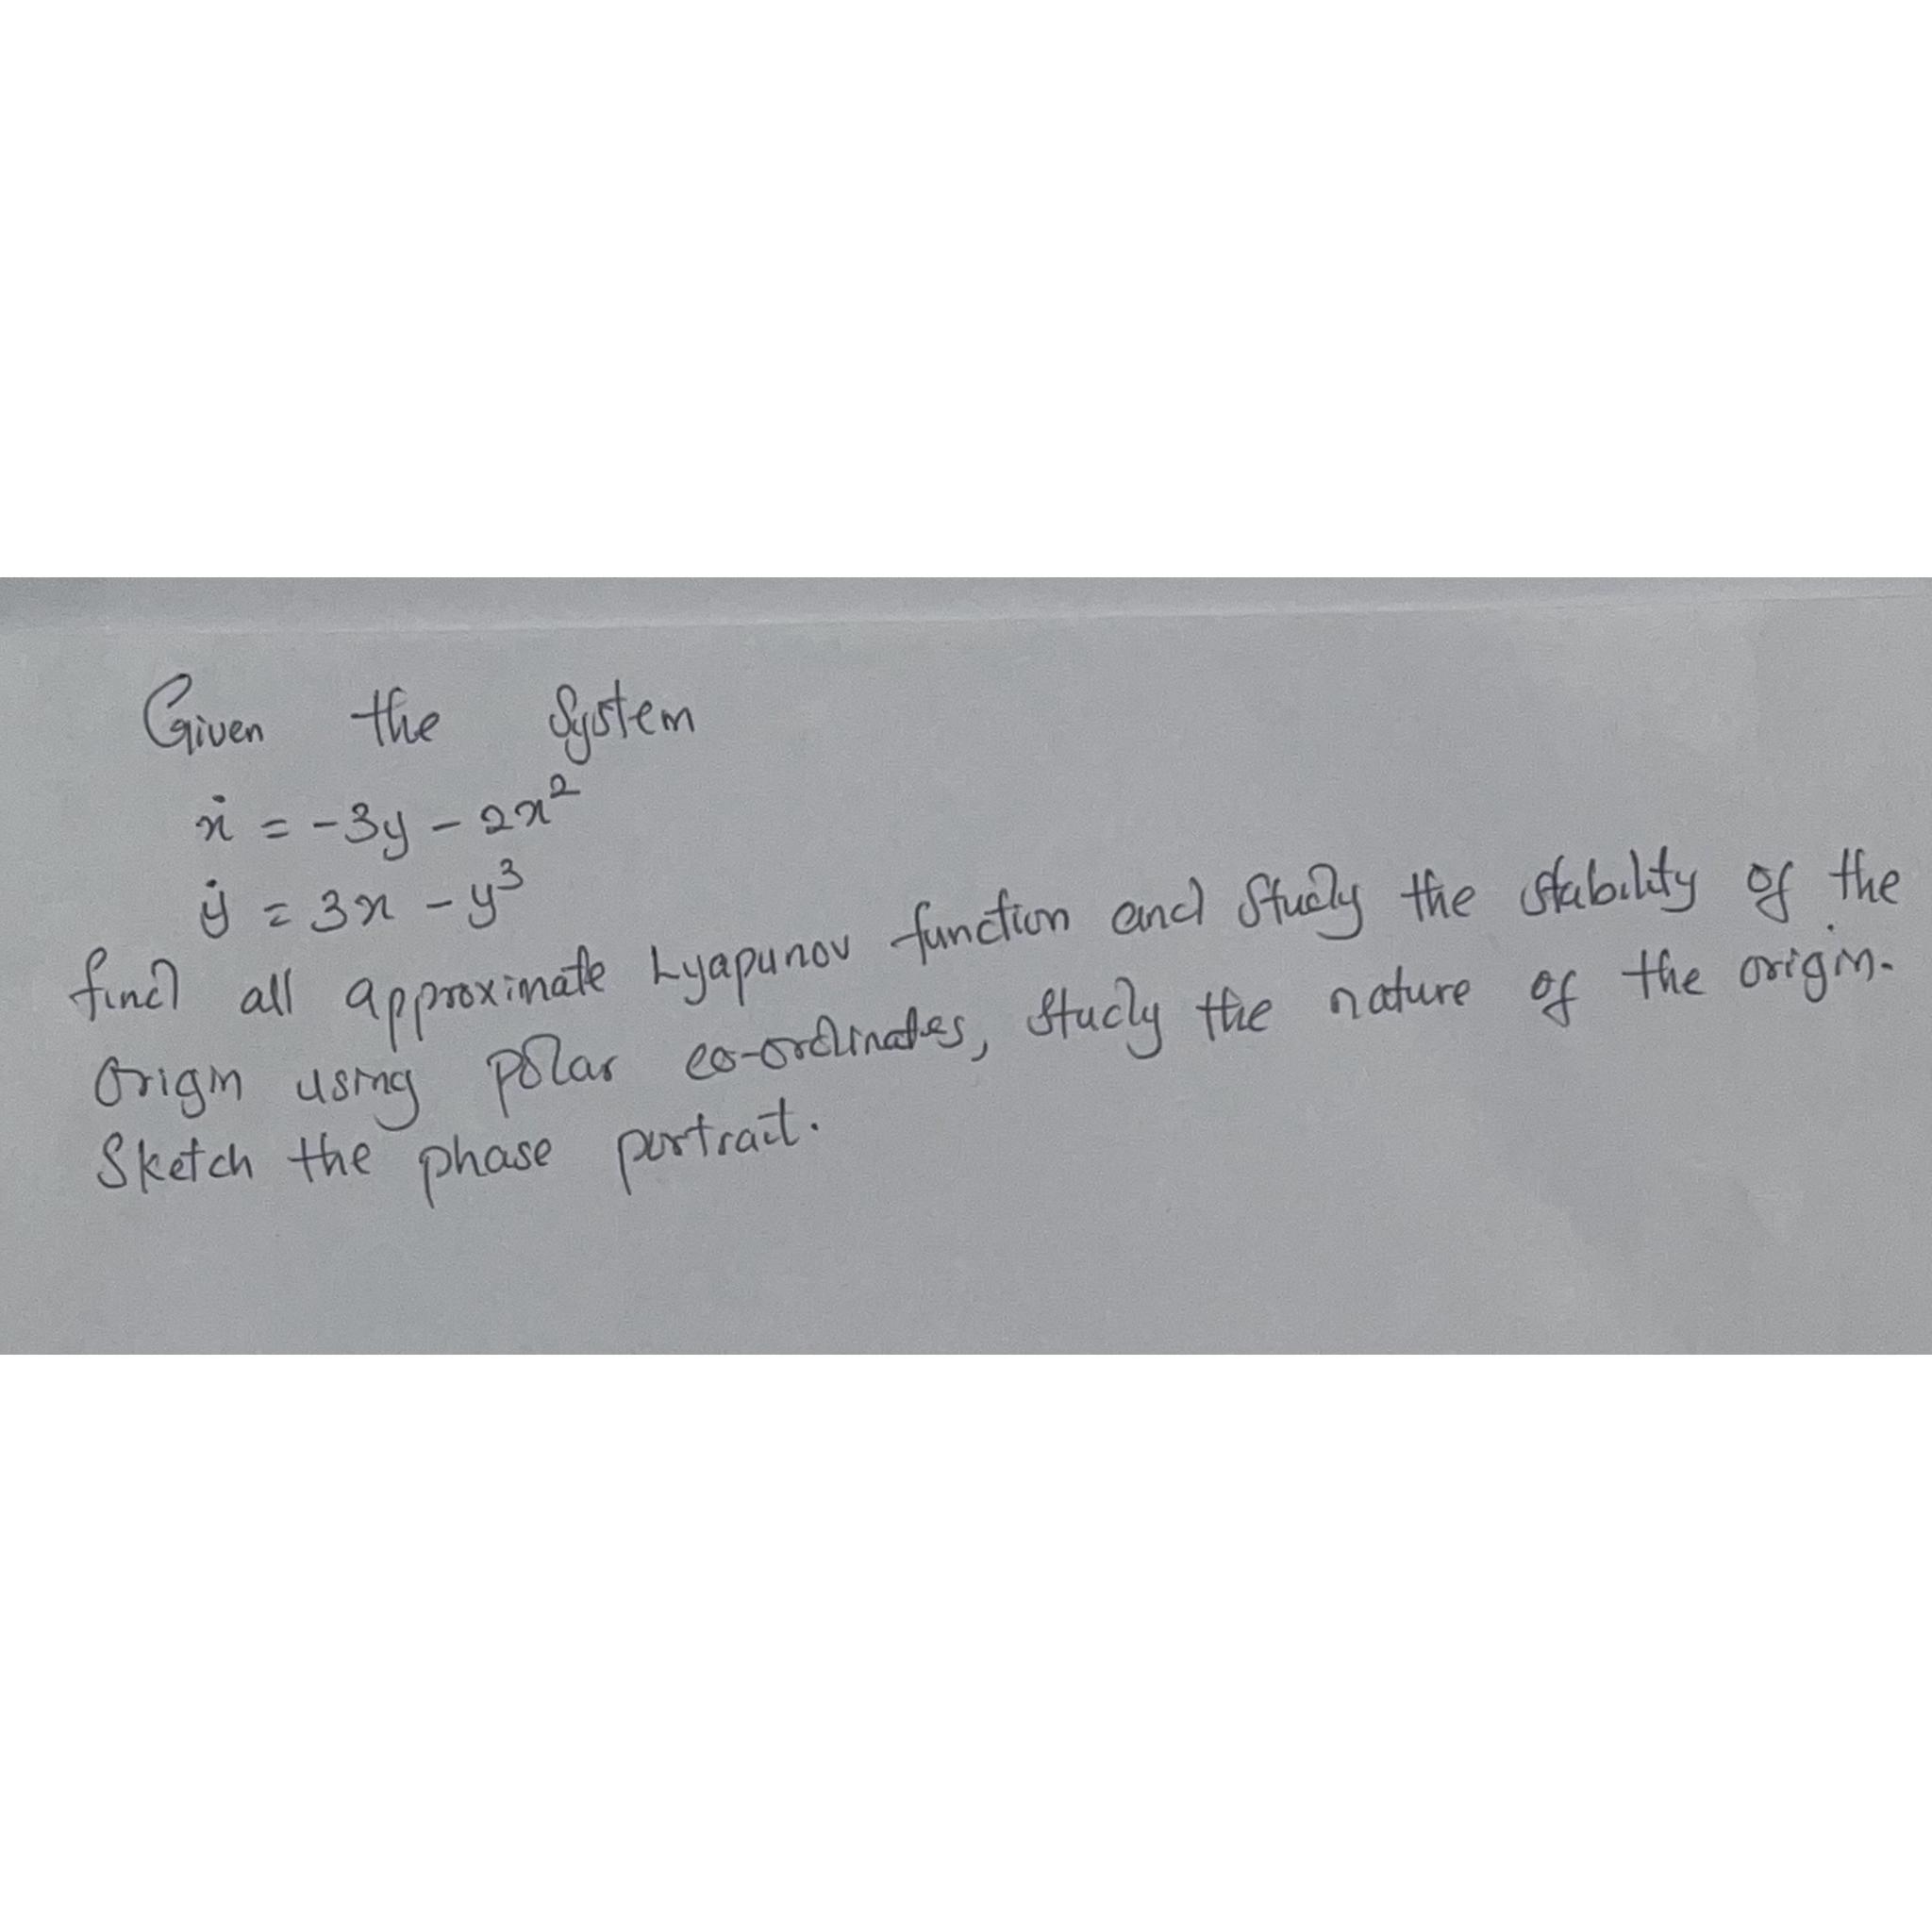 Given the System
ẋ = -3y - 2x²
ẏ = 3x - y³
find all approximate Lyapunov function and Study the stability of the
Origin using polar co-ordinates, study the nature of the origin.
Sketch the phase portrait.